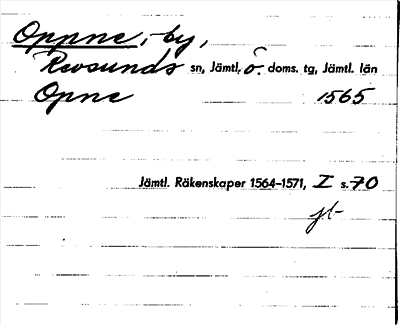 Oppne, by,
Revsunds sn, Jämtl. ö. doms. tg, Jämtl. län
Opne 1565
Jämtl. Räkenskaper 1564-1571, I s. 70